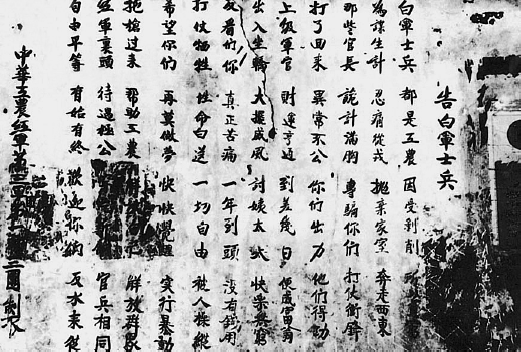 告白軍士兵
白軍士兵 都是工農 因受剝削
為謀生計 忍痛從戎 拋棄家室 奔走西東
那些官長 詭計滿胸 專騙你們 打仗衝鋒
打了回來 異常不公 你們出力 他們得功
上級軍官 財運亨通 到差幾日 便成富翁
出入坐轎 大擺威風 討姨太太 快樂無窮
反看你们 真正苦痛 一年到頭 没有錢用
打仗犧牲 性命白送 一切自由 被人操縱
希望你们 再莫做夢 快快覺醒 實行暴動
拖槍过来 帮助工農 解放群眾
紅軍裏頭 待遇極公 官兵相同
自由平等 有始有終 歡迎你們 反水来從
中華工農紅軍第三軍 三團